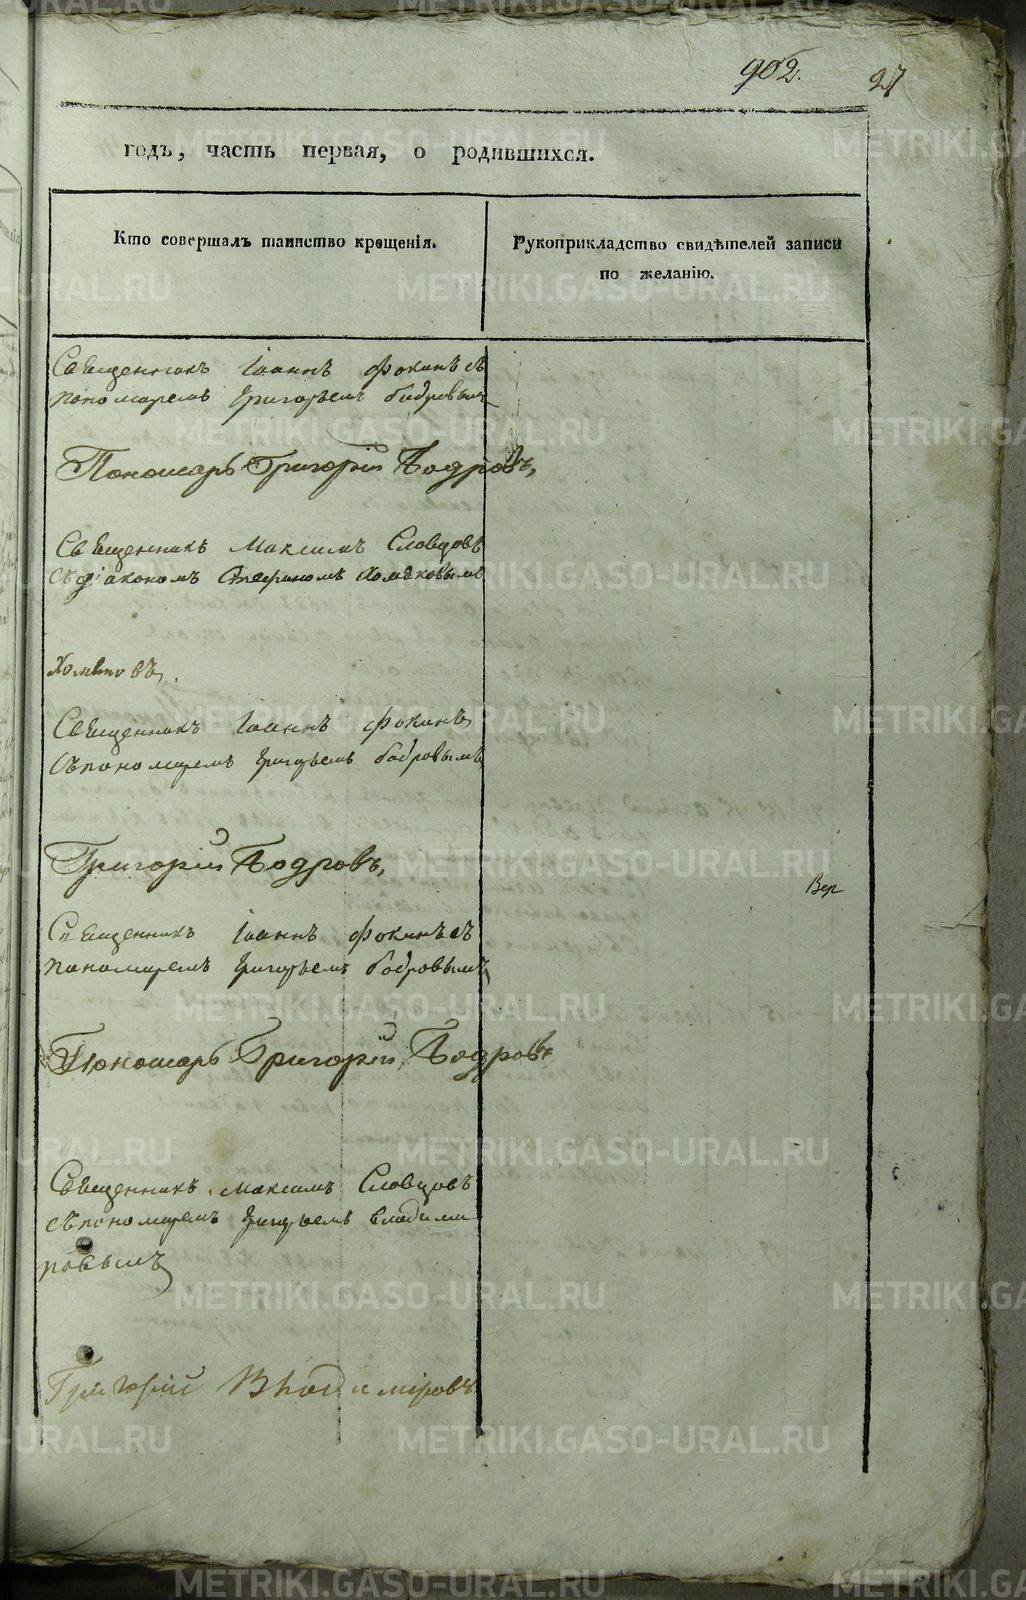 902.
27
годъ, часть первая, о родившихся.
Кто совершалъ таинство крещенія.
Рукоприкладство свидѣтелей записи
по желанію.
Священникъ Іоаннъ Фокинъ съ
пономаремъ Григорьемъ Бодровымъ
Пономарь Григорій Бодровъ,
Священникъ Максимъ Словцовъ
съ діакономъ Стефаномъ Хомяковымъ
Священникъ Іоаннъ Фокинъ
съ пономаремъ Григорьемъ Бодровымъ
Григорій Бодровъ,
Вер
Священникъ Іоаннъ Фокинъ съ
пономаремъ Григорьемъ Бодровымъ
Пономарь Григорій Бодровъ
Священникъ Максимъ Словцовъ
съ пономаремъ Григорьемъ Владими
ровымъ
Григорій Владиміровъ
METRIKI.GASO-URAL.RU